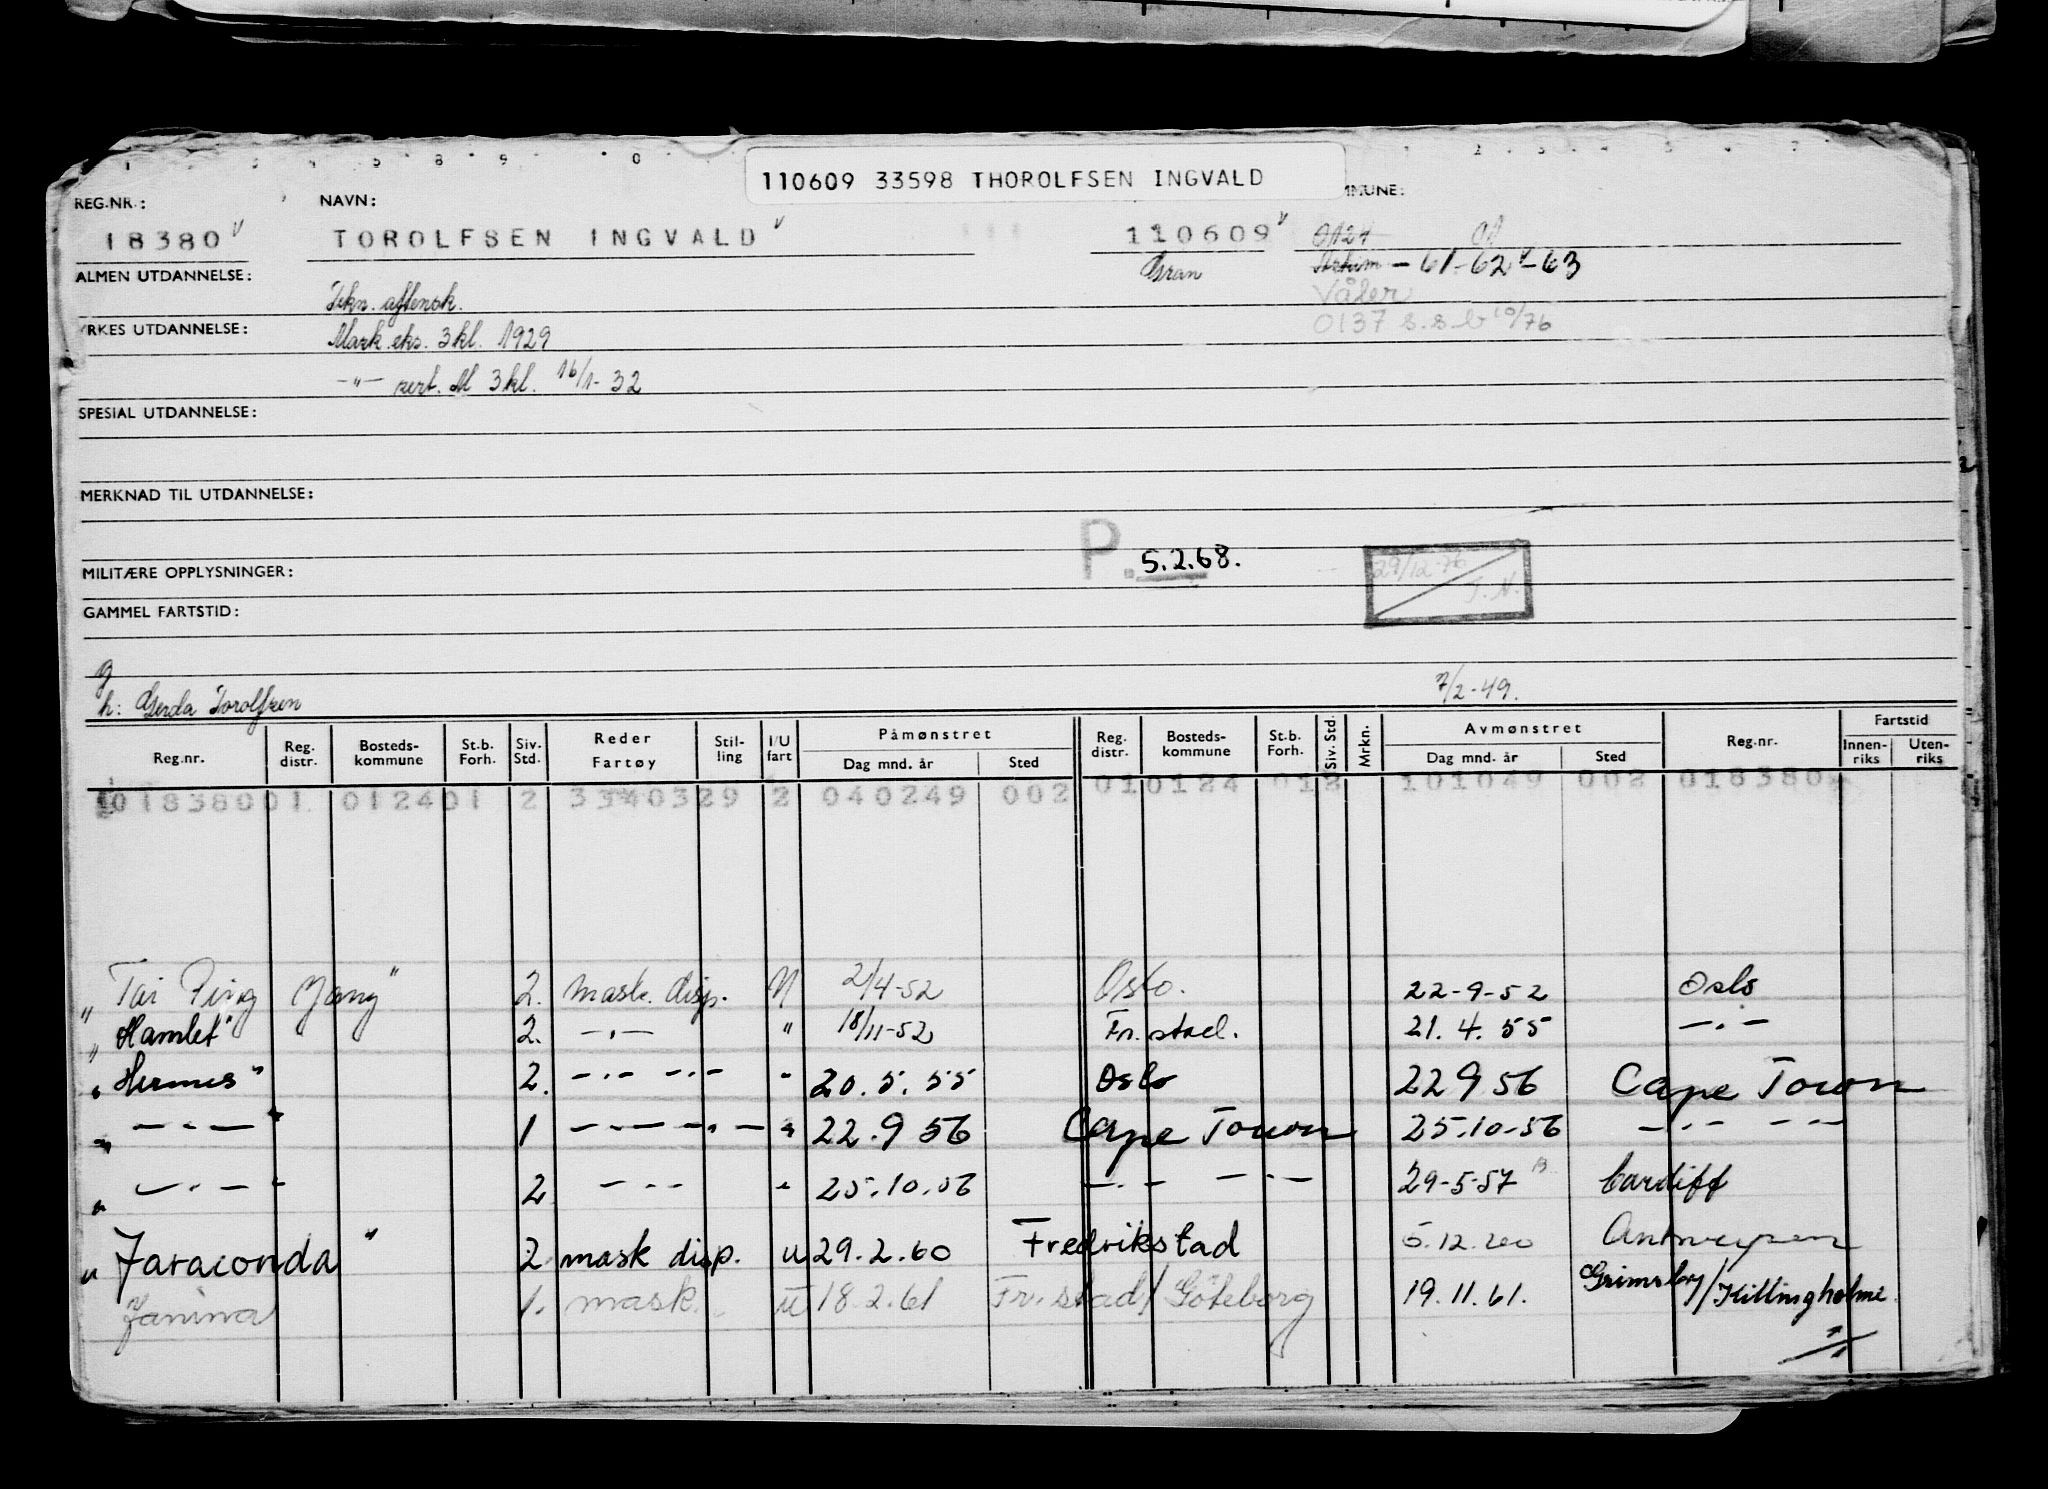 110609 33598 THOROLFSEN INGVALD
REG.NR.: NAVN: MMUNE:
18380 TOROLFSEN INGVALD 110609 0124
ALMEN UTDANNELSE: Gran Askim - 61 - 62 - 63
Tekn. aftensk. Våler
YRKES UTDANNELSE: Mask. eks. 3 kl. 1929 0137 s.s.b 10/76
-"- sert. M 3 kl. 16/1-32
SPESIAL UTDANNELSE:
MERKNAD TIL UTDANNELSE:
P. 5.2.68. 29/12-76
MILITÆRE OPPLYSNINGER: T.N.
GAMMEL FARTSTID:
g
h: Gerda Torolfsen 7/2-49.
Reg.nr. Reg. distr. Bosteds-kommune St.b. Forh. Siv. Std. Reder Fartøy Stil-ling I/U fart Påmønstret Dag mnd. år Sted Reg. distr. Bosteds-kommune St.b. Forh. Siv. Std. Mrkn. Avmønstret Dag mnd. år Sted Reg.nr. Fartstid Innen-riks Uten-riks
01838001 012401 2 3340329 2 040249 002 010124 012 101049 002 018380
" Tai Ping Yang " 2. mask. disp. U 2/4-52 Oslo. 22-9-52 Oslo
" Hamlet " 2. -"- " 18/11-52 Fr.stad. 21.4.55 -"-
" Hermes " 2. -"- -"- " 20.5.55 Oslo 22 9 56 Cape Town
" -"- " 1 -"- -"- " 22.9 56 Cape Town 25.10-56 -"- -"-
" -"- 2 -"- " 25.10.56 -"- -"- 29-5-57 Cardiff
" Jaraconda " 2 mask disp. u 29.2.60 Fredrikstad 5.12.60 Antwerpen
Janina 1. mask. U 18.2.61 Fr.stad/Göteborg 19.11.61. Grimsby/Killingholme